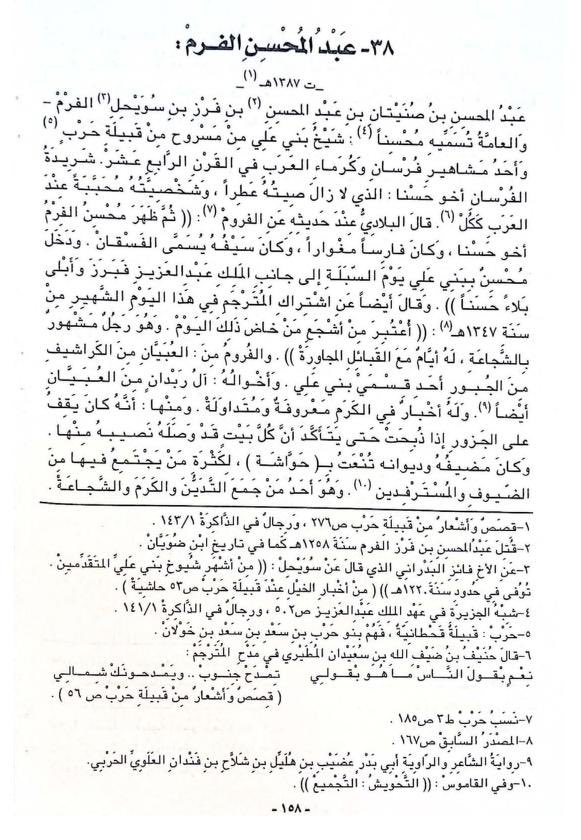 ٣٨- عَبْدُ المُحْسِنِ الفرمْ :
_ت ١٣٨٧هـ_ (١)
عَبْدُ المحسن بنُ صُنَيْتَان بنِ عَبدِ المحسنِ (٢) بنِ فَرْزِ بنِ سُوَيْحل(٣) الفرمْ –
والعامَّةُ تُسَمِّيهِ مُحْسناً (٤) : شَيْخُ بَني علي منْ مَسْروح منْ قَبيلَةِ حَرْب (٥)
وأحَدُ مَشاهيرِ فُرْسان وكُرماءِ العَرب في القَرْنِ الرابع عَشْرَ. شَريدَةُ
الفُرْسان أخو حَسْنا : الذي لا زالَ صيتُهُ عَطراً ، وشَخْصيَّتُهُ مُحَبَّبةً عنْدَ
العَرب كَكُلّ (٦). قالَ البلاديُّ عنْدَ حَديثه عَن الفروم (٧) : (( ثُمَّ ظَهَرَ مُحْسنُ الفرمُ
أخو حَسْنا ، وكانَ فارساً مغْواراً ، وكانَ سَيْفُهُ يُسمَّى الفَسْقان . ودَخَلَ
مُحْسنٌ ببَني علي يَوْمَ السّبَلَة إلى جانبِ الملك عبدالعزيز فَبَرَزَ وأبْلى
بلاءً حَسَناً )) . وقالَ أيْضاً عَن اشْتراك المُتَرْجَم في هَذا اليَوْم الشَّهير منْ
سَنَة ١٣٤٧هـ(٨) : (( أُعْتُبرَ منْ أشْجَع مَنْ خاضَ ذَلكَ اليَوْمَ . وهُوَ رَجُلٌ مَشْهورٌ
بالشَّجاعَة ، لَهُ أيّامٌ مَعَ القَبائل المجاورَة )) . والفُرومُ منَ : العُبيَّان منَ الكَراشيف
منَ الجُبور أحَد قسْمَيْ بَني علي . وأخْوالُهُ : آلُ رَبْدان منَ العُبيَّان
أيْضاً (٩) . ولَهُ أخْبارٌ في الكَرَم مَعْروفَةٌ ومُتَداوَلَةٌ . ومنْها : أنَّهُ كانَ يَقفُ
على الجَزور إذا ذُبحَتْ حَتى يَتأكَّدَ أنَّ كُلَّ بَيْت قَدْ وَصَلَهُ نَصيبهُ منْها .
وكانَ مَضيفُهُ وديوانُه تُنْعَتُ بـ( حَوَّاشَة ) ، لكَثْرَة مَنْ يَجْتَمعُ فيها منَ
الضّيوف والمُسْتَرْفدين (١٠). وهُوَ أحَدُ مَنْ جَمَعَ التَّديُّنَ والكَرمَ والشَّجاعَةَ .
١-قصَصٌ وأشْعارٌ منْ قَبيلَة حَرْب ص٢٧٦ ، ورجالٌ في الذَّاكرَة ١٤٣/١ .
٢-قُتلَ عَبدُالمحسن بن فَرْز الفرم سَنَةَ ١٢٥٨هـ كَما في تاريخ ابْن ضُوَيَّان .
٣-عَن الأخ فائز البَدْراني الذي قالَ عَنْ سُوَيْحل : (( منْ أشْهَر شُيوخ بَني عليٍّ المتَقَدِّمينَ .
تُوفي في حُدود سَنَة ١٢٢٠هـ )) ( منْ أخْبار الخَيْل عنْدَ قَبيلَة حَرْب ص٥٣ حاشيَة ) .
٤-شبْهُ الجَزيرَة في عَهْد الملك عَبدالعَزيز ص٥٠٢ ، ورجالٌ في الذاكرَة ١٤١/١ .
٥-حَرْبُ : قَبيلَةٌ قَحْطانيَّةٌ ، فَهُمْ بَنو حَرْب بن سَعْد بن سَعْد بن خَوْلانَ .
٦-قالَ حُنَيْفُ بنُ ضَيْف الله بن سعَيْدان المُطَيْري في مَدْح المُتَرْجَم :
نعَمْ بْقُولَ النَّاسْ مَا هُو بقُولـي تمْدَحْ جنُوب .. ويَمْدحونَكْ شمَـالـي
( قصَصٌ وأشْعارٌ منْ قَبيلَة حَرْب ص ٥٦ ) .
٧-نَسَبُ حَرْب ط٣ ص١٨٥ .
٨-المصْدَرُ السّابقُ ص١٦٧ .
٩-روايَةُ الشّاعر والرّاويَة أبي بَدْر عضَيْب بن هُلَيِّل بن شَلاَّح بن فَنْدان العلَوي الحَرْبي.
١٠-وفي القاموس : (( التَّحْويشُ : التَّجْميعُ )) .
- ١٥٨ -